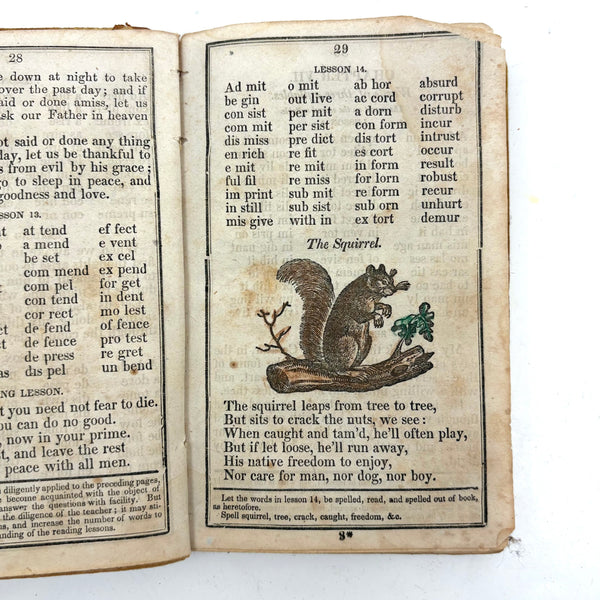 28
e down at night to take
over the past day; and if
aid or done amiss, let us
sk our Father in heaven
ot said or done any thing
day, let us be thankful to
s from evil by his grace;
go to sleep in peace, and
goodness and love.
ESSON 13.
at tend ef fect
a mend e vent
be set ex cel
com mend ex pend
com pel for get
con tend in dent
cor rect mo lest
de fend of fence
de fence pro test
de press re gret
dis pel un bend
NG LESSON.
t you need not fear to die.
ou can do no good.
, now in your prime.
t, and leave the rest
peace with all men.
diligently applied to the preceding pages,
become acquainted with the object of
answer the questions with facility. But
the diligence of the teacher; it may sti-
ns, and increase the number of words to
nding of the reading lessons.
29
LESSON 14.
Ad mit o mit ab hor absurd
be gin out live ac cord corrupt
con sist per mit a dorn disturb
com mit per sist con form incur
dis miss pre dict dis tort intrust
en rich re fit es cort occur
e mit re mit in form result
ful fil re miss for lorn robust
im print sub mit re form recur
in still sub sist sub orn unhurt
mis give with in ex tort demur
The Squirrel.
The squirrel leaps from tree to tree,
But sits to crack the nuts, we see:
When caught and tam'd, he'll often play,
But if let loose, he'll run away,
His native freedom to enjoy,
Nor care for man, nor dog, nor boy.
Let the words in lesson 14, be spelled, read, and spelled out of book,
as heretofore.
Spell squirrel, tree, crack, caught, freedom, &c.
3*